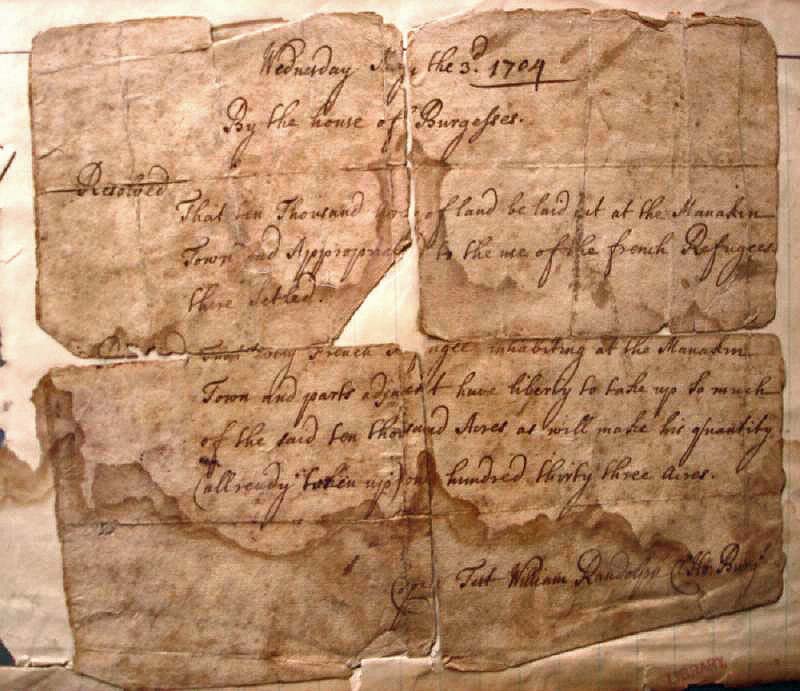 Wednesday May the 3d. 1704
By the house of Burgesses.
Resolved
That ten Thousand Acres of land be laid out at the Manakin
Town and Appropriated to the use of the french Refugees
there Setled.
French inhabiting at the Manakin
Town and parts adjacent have liberty to take up so much
of the said ten thousand Acres as will make his quantity
(allready taken up) one hundred thirty three Acres.
Test William Randolph
LIBRARY